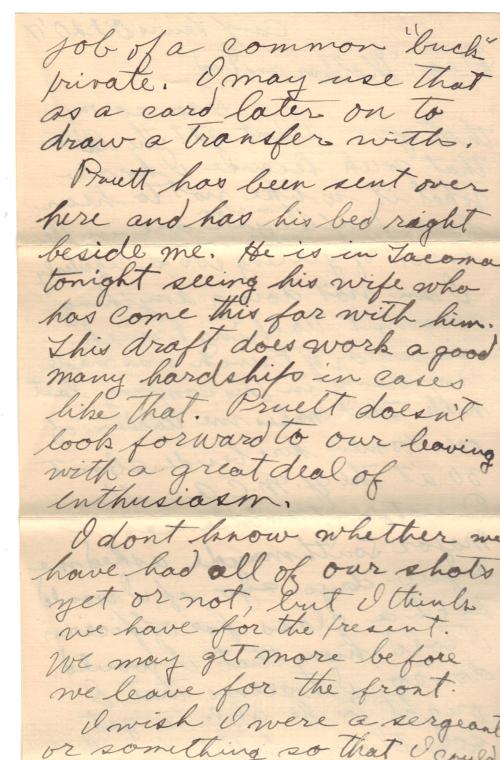 job of a common "buck"
private. I may use that
as a card later on to
draw a transfer with.
Pruett has been sent over
here and has his bed right
beside me. He is in Tacoma
tonight seeing his wife who
has come this far with him.
This draft does work a good
many hardships in cases
like that. Pruett doesn't
look forward to our leaving
with a great deal of
enthusiasm.
I dont know whether we
have had all of our shots
yet or not, but I think
we have for the present.
We may get more before
we leave for the front.
I wish I were a sergeant
or something so that I could